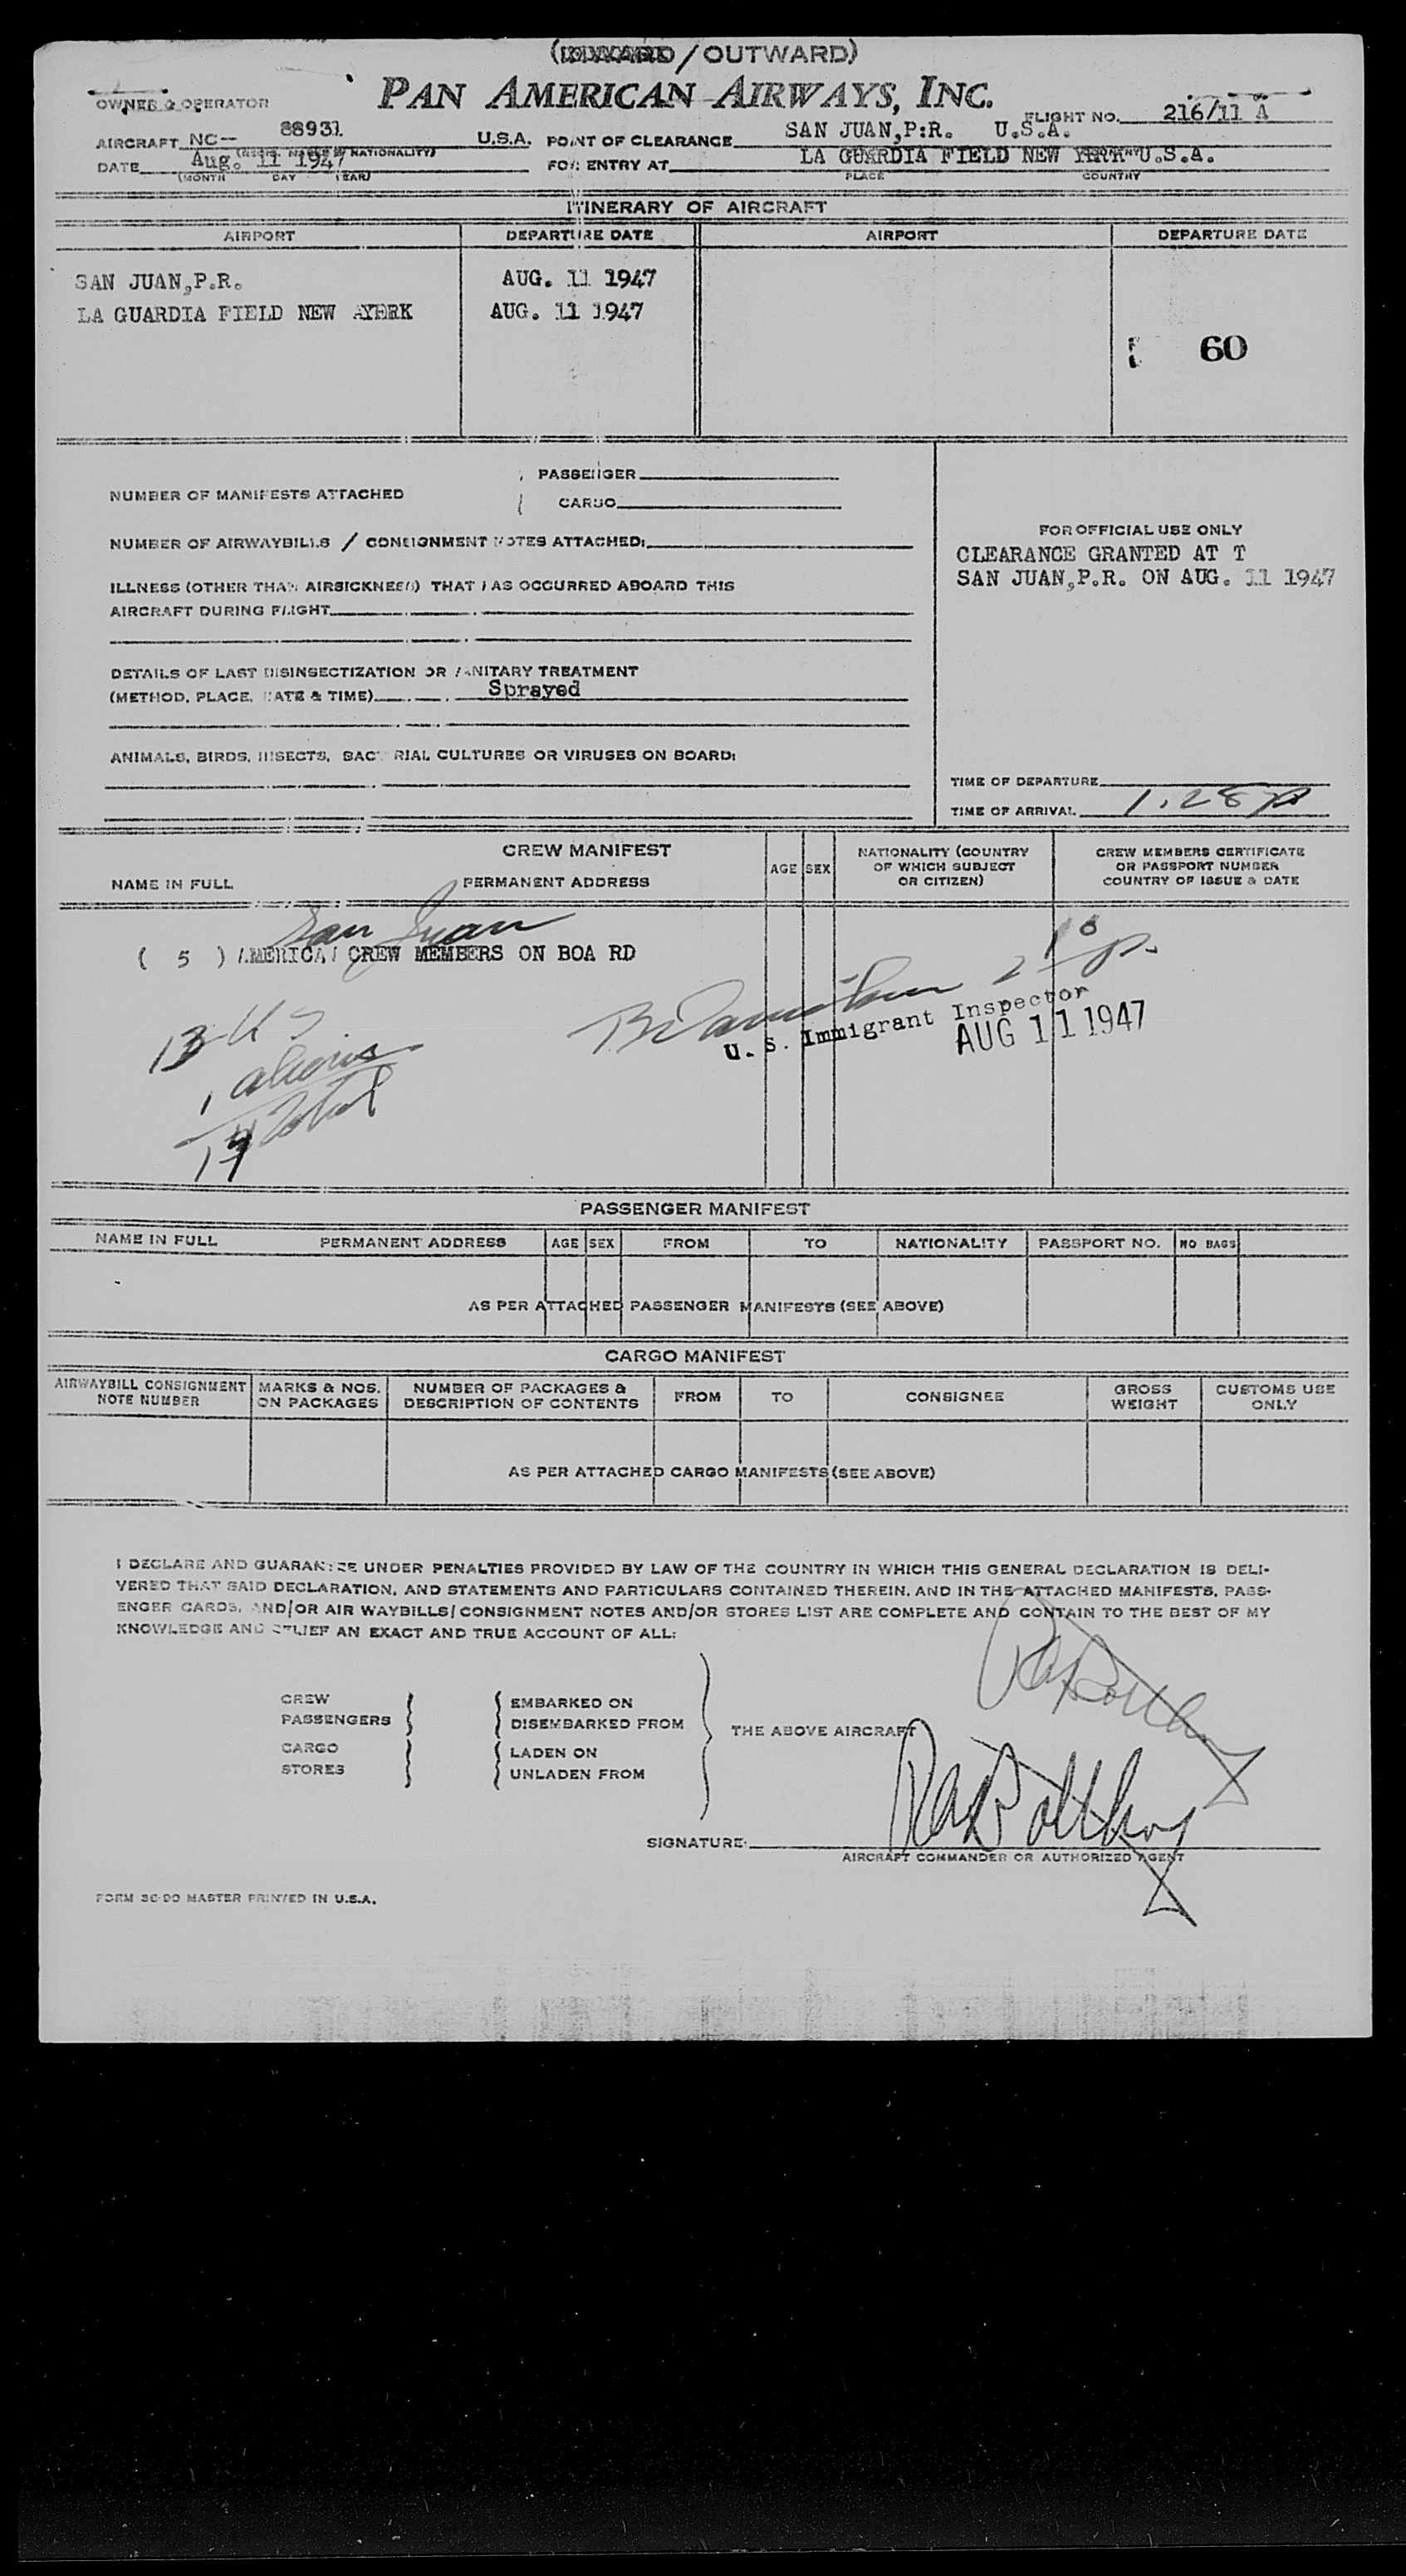 (INWARD/OUTWARD)
PAN AMERICAN AIRWAYS, INC.
OWNER & OPERATOR
FLIGHT NO. 216/11 A
AIRCRAFT NC-- 88931 U.S.A. POINT OF CLEARANCE SAN JUAN,P:R. U.S.A.
DATE Aug. 11 1947 FOR ENTRY AT LA GUARDIA FIELD NEW YERK U.S.A.
(MONTH DAY YEAR) PLACE COUNTRY
ITINERARY OF AIRCRAFT
AIRPORT DEPARTURE DATE AIRPORT DEPARTURE DATE
SAN JUAN,P.R. AUG. 11 1947
LA GUARDIA FIELD NEW AYERK AUG. 11 1947
60
PASSENGER
NUMBER OF MANIFESTS ATTACHED
CARGO
NUMBER OF AIRWAYBILLS / CONSIGNMENT NOTES ATTACHED:
ILLNESS (OTHER THAN AIRSICKNESS) THAT HAS OCCURRED ABOARD THIS
AIRCRAFT DURING FLIGHT
DETAILS OF LAST DISINSECTIZATION OR SANITARY TREATMENT
(METHOD, PLACE, DATE & TIME) Sprayed
ANIMALS, BIRDS, INSECTS, BACTERIAL CULTURES OR VIRUSES ON BOARD:
FOR OFFICIAL USE ONLY
CLEARANCE GRANTED AT T
SAN JUAN,P.R. ON AUG. 11 1947
TIME OF DEPARTURE
TIME OF ARRIVAL 1.28 p
CREW MANIFEST
NAME IN FULL PERMANENT ADDRESS AGE SEX NATIONALITY (COUNTRY OF WHICH SUBJECT OR CITIZEN) CREW MEMBERS CERTIFICATE OR PASSPORT NUMBER COUNTRY OF ISSUE & DATE
San Juan
( 5 ) AMERICAN CREW MEMBERS ON BOA RD
13 US
1 aliens
14 Total
U. S. Immigrant Inspector
AUG 11 1947
PASSENGER MANIFEST
NAME IN FULL PERMANENT ADDRESS AGE SEX FROM TO NATIONALITY PASSPORT NO. NO BAGS
AS PER ATTACHED PASSENGER MANIFESTS (SEE ABOVE)
CARGO MANIFEST
AIRWAYBILL CONSIGNMENT NOTE NUMBER MARKS & NOS. ON PACKAGES NUMBER OF PACKAGES & DESCRIPTION OF CONTENTS FROM TO CONSIGNEE GROSS WEIGHT CUSTOMS USE ONLY
AS PER ATTACHED CARGO MANIFESTS (SEE ABOVE)
I DECLARE AND GUARANTEE UNDER PENALTIES PROVIDED BY LAW OF THE COUNTRY IN WHICH THIS GENERAL DECLARATION IS DELI-
VERED THAT SAID DECLARATION, AND STATEMENTS AND PARTICULARS CONTAINED THEREIN, AND IN THE ATTACHED MANIFESTS, PASS-
ENGER CARDS, AND/OR AIR WAYBILLS/CONSIGNMENT NOTES AND/OR STORES LIST ARE COMPLETE AND CONTAIN TO THE BEST OF MY
KNOWLEDGE AND BELIEF AN EXACT AND TRUE ACCOUNT OF ALL:
CREW EMBARKED ON
PASSENGERS DISEMBARKED FROM
THE ABOVE AIRCRAFT
CARGO LADEN ON
STORES UNLADEN FROM
SIGNATURE:
AIRCRAFT COMMANDER OR AUTHORIZED AGENT
FORM 36-90 MASTER PRINTED IN U.S.A.